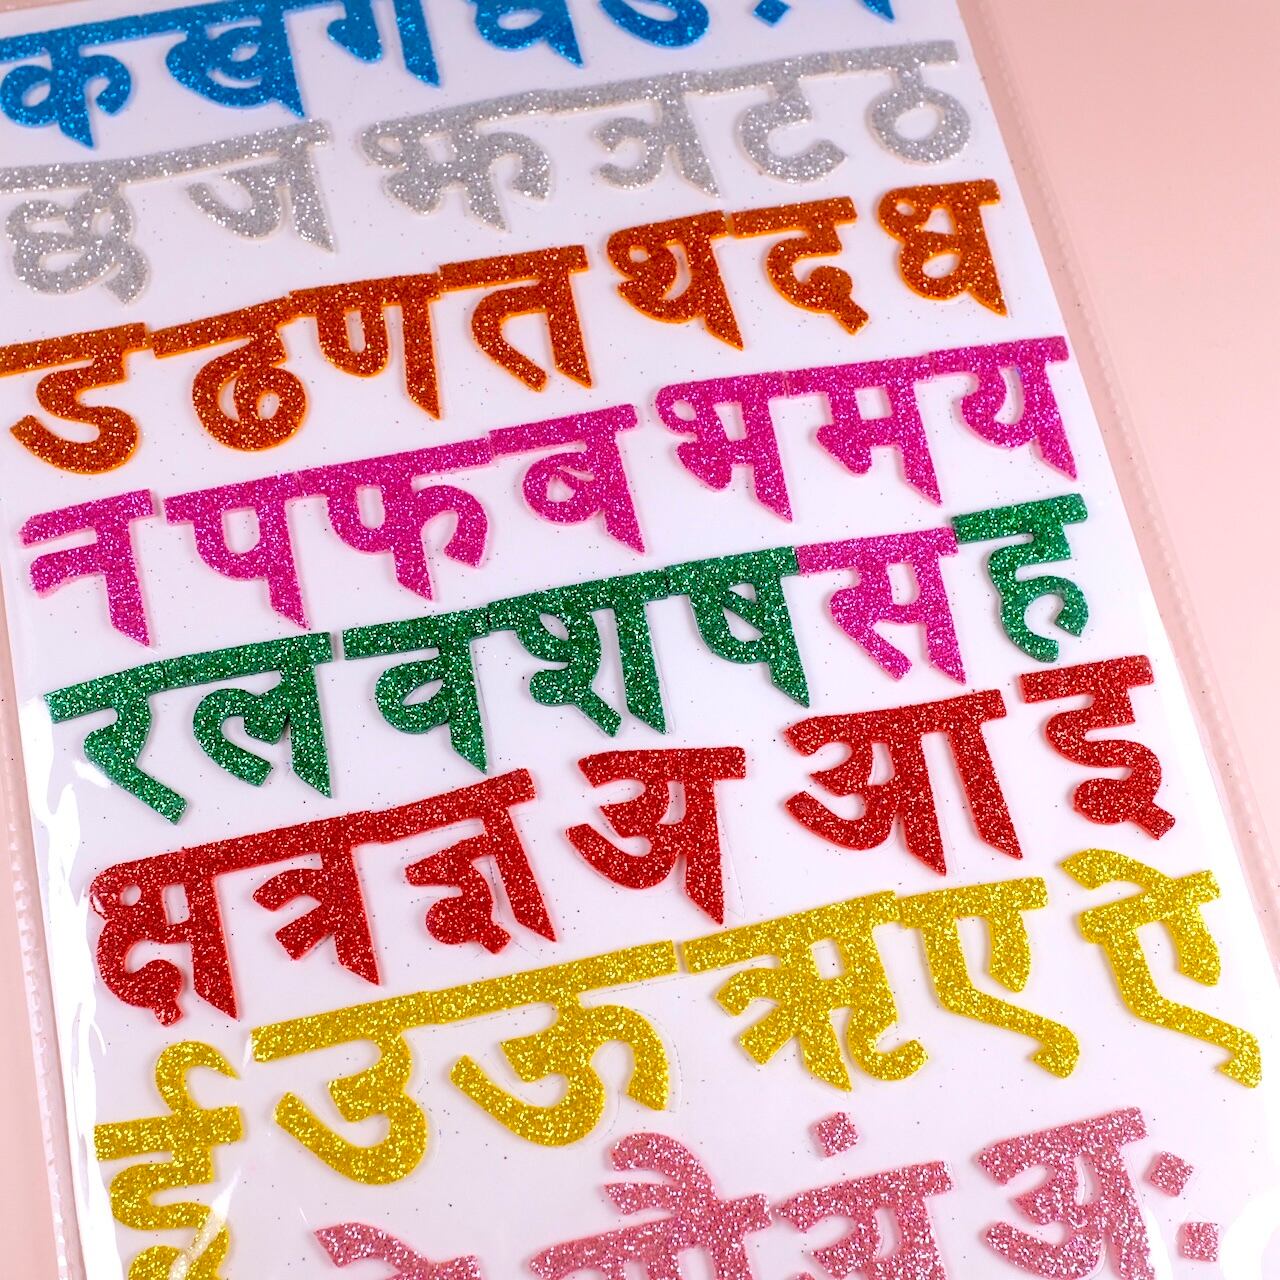 क ख ग घ ङ
छ ज झ ञ ट ठ
ड ढ ण त थ द ध
न प फ ब भ म य
र ल व श ष स ह
क्ष त्र ज्ञ अ आ इ
ई उ ऊ ऋ ए ऐ
औ अं अः